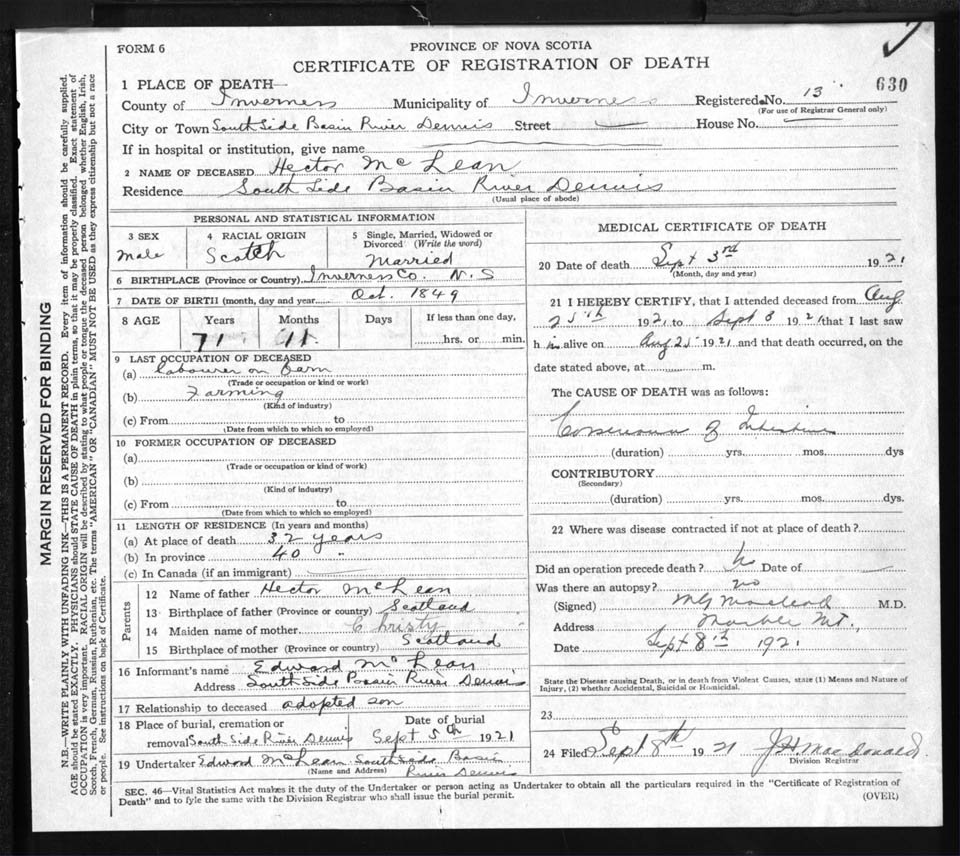 FORM 6
PROVINCE OF NOVA SCOTIA
CERTIFICATE OF REGISTRATION OF DEATH
630
1 PLACE OF DEATH—
County of Inverness Municipality of Inverness Registered No. 13
(For use of Registrar General only)
City or Town South Side Basin River Dennis Street House No.
If in hospital or institution, give name
2 NAME OF DECEASED Hector McLean
Residence South Side Basin River Dennis
(Usual place of abode)
PERSONAL AND STATISTICAL INFORMATION
3 SEX 4 RACIAL ORIGIN 5 Single, Married, Widowed or
Divorced (Write the word)
Male Scotch Married
6 BIRTHPLACE (Province or Country) Inverness Co. N.S
7 DATE OF BIRTH (month, day and year) Oct. 1849
8 AGE Years Months Days If less than one day,
71 11 hrs. or min.
9 LAST OCCUPATION OF DECEASED
(a) Labourer on Farm
(Trade or occupation or kind or work)
(b) Farming
(Kind of industry)
(c) From to
(Date from which to which so employed)
10 FORMER OCCUPATION OF DECEASED
(a)
(Trade or occupation or kind of work)
(b)
(Kind of industry)
(c) From to
(Date from which to which so employed)
11 LENGTH OF RESIDENCE (In years and months)
(a) At place of death 32 years
(b) In province 40 "
(c) In Canada (if an immigrant)
Parents
12 Name of father Hector McLean
13 Birthplace of father (Province or country) Scotland
14 Maiden name of mother Christy
15 Birthplace of mother (Province or country) Scotland
16 Informant's name Edward McLean
Address South Side Basin River Dennis
17 Relationship to deceased adopted son
18 Place of burial, cremation or Date of burial
removal South Side River Dennis Sept 5th 1921
19 Undertaker Edward McLean South Side Basin
(Name and Address) River Dennis
MEDICAL CERTIFICATE OF DEATH
20 Date of death Sept 3rd 1921
(Month, day and year)
21 I HEREBY CERTIFY, that I attended deceased from Aug
25th 1921 to Sept 3 1921 that I last saw
h im alive on Aug 25 1921 and that death occurred, on the
date stated above, at m.
The CAUSE OF DEATH was as follows:
of Intestines
(duration) yrs. mos. dys
CONTRIBUTORY
(Secondary)
(duration) yrs. mos. dys.
22 Where was disease contracted if not at place of death?
Did an operation precede death? No Date of
Was there an autopsy? no
(Signed) MG Macleod M.D.
Address Marble Mt.
Date Sept 8th 1921
State the Disease causing Death, or in death from Violent Causes, state (1) Means and Nature of
Injury, (2) whether Accidental, Suicidal or Homicidal.
23
24 Filed Sept 8th 1921 J H MacDonald
Division Registrar
SEC. 46—Vital Statistics Act makes it the duty of the Undertaker or person acting as Undertaker to obtain all the particulars required in the "Certificate of Registration of
Death" and to fyle the same with the Division Registrar who shall issue the burial permit. (OVER)
MARGIN RESERVED FOR BINDING
N.B.—WRITE PLAINLY WITH UNFADING INK—THIS IS A PERMANENT RECORD. Every item of information should be carefully supplied.
AGE should be stated EXACTLY. PHYSICIANS should STATE CAUSE OF DEATH in plain terms, so that it may be properly classified. Exact statement of
OCCUPATION is very important. RACIAL ORIGIN will be described by stating to what people or tongue the deceased person belonged whether English, Irish,
Scotch, French, German, Russian, Ruthenian, etc. The terms "AMERICAN" OR "CANADIAN" MUST NOT BE USED as they express citizenship but not a race
or people. See instructions on back of Certificate.